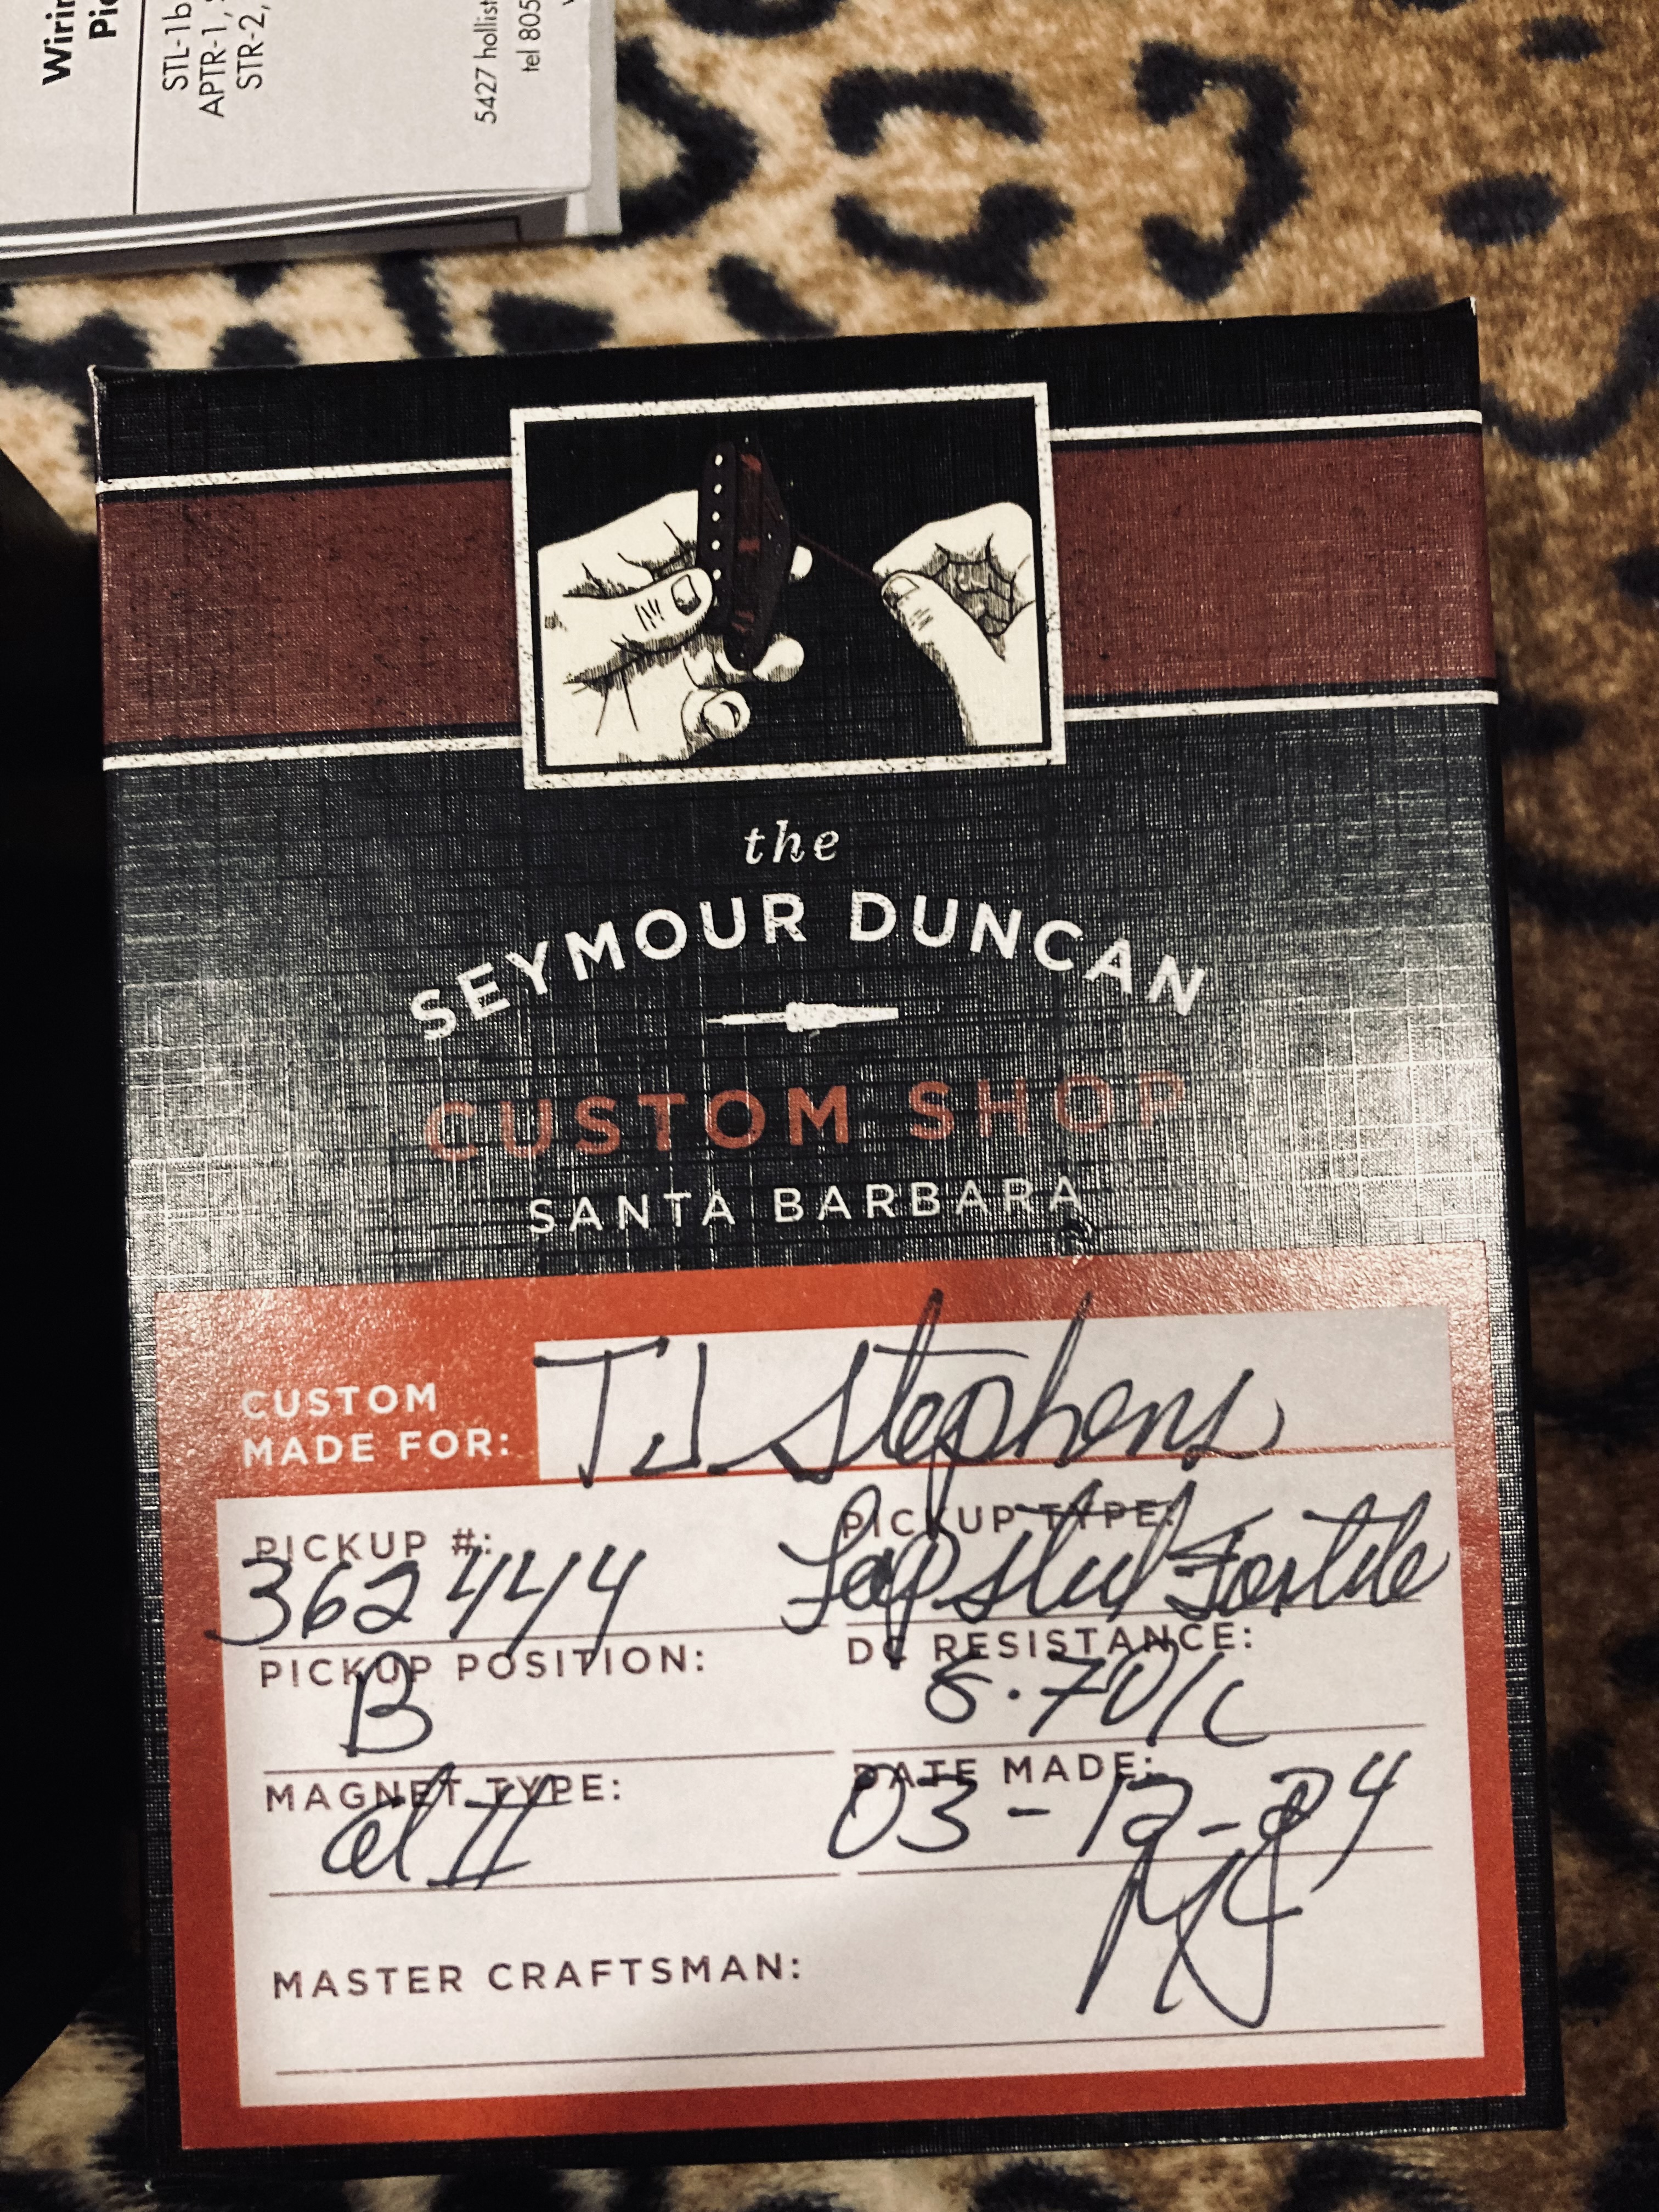 Wirin
Pic
STL-1b
APTR-1,
STR-2,
5427 hollist
tel 805
the
SEYMOUR DUNCAN
CUSTOM SHOP
SANTA BARBARA
CUSTOM
MADE FOR: TJ Stephens
PICKUP #: 362444
PICKUP TYPE: Lap steel For tele
PICKUP POSITION: B
DC RESISTANCE: 8.70K
MAGNET TYPE: al II
DATE MADE: 03-12-24
MASTER CRAFTSMAN: